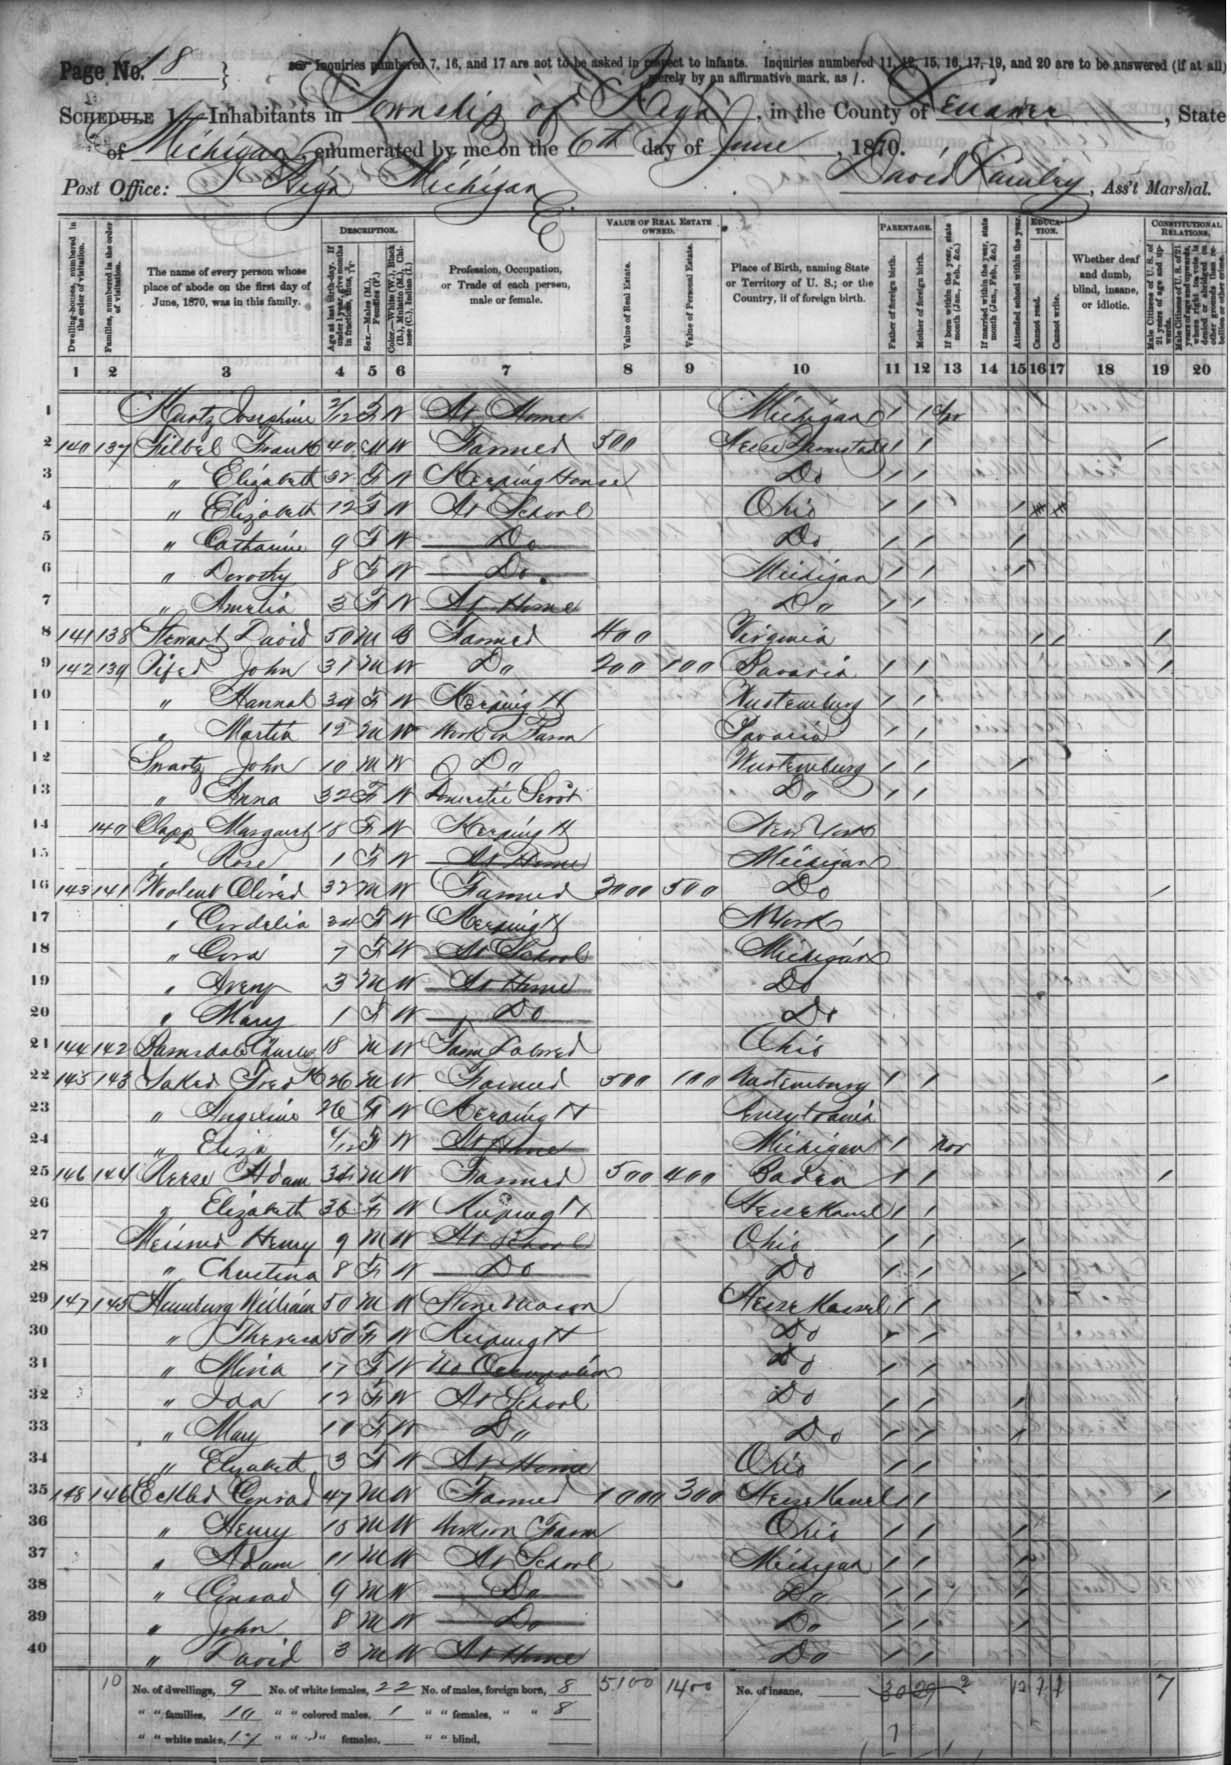 Page No. 18
Inquiries numbered 7, 16, and 17 are not to be asked in respect to infants. Inquiries numbered 11, 12, 15, 16, 17, 19, and 20 are to be answered (if at all)
merely by an affirmative mark, as /.
SCHEDULE 1.—Inhabitants in Township of Riga, in the County of Lenawee, State
of Michigan, enumerated by me on the 6th day of June, 1870.
Post Office: Riga Michigan David, Ass't Marshal.
Dwelling-houses, numbered in the order of visitation.
Families, numbered in the order of visitation.
The name of every person whose place of abode on the first day of June, 1870, was in this family.
DESCRIPTION.
Age at last birth-day. If under 1 year, give months in fractions, thus, 3/12
Sex.—Males (M.), Females (F.)
Color.—White (W.), Black (B.), Mulatto (M.), Chinese (C.), Indian (I.)
Profession, Occupation, or Trade of each person, male or female.
VALUE OF REAL ESTATE OWNED.
Value of Real Estate.
Value of Personal Estate.
Place of Birth, naming State or Territory of U. S.; or the Country, if of foreign birth.
PARENTAGE.
Father of foreign birth.
Mother of foreign birth.
If born within the year, state month (Jan., Feb., &c.)
If married within the year, state month (Jan., Feb., &c.)
Attended school within the year.
EDUCATION.
Cannot read.
Cannot write.
Whether deaf and dumb, blind, insane, or idiotic.
CONSTITUTIONAL RELATIONS.
Male Citizens of U. S. of 21 years of age and upwards.
1 2 3 4 5 6 7 8 9 10 11 12 13 14 15 16 17 18 19 20
1 Josephine 2/12 F W At Home Michigan / / Apr
2 140 137 Filbel Frank 40 M W Farmer 500 / / /
3 " Elizabeth 32 F W Keeping House Do / /
4 " Elizabeth 12 F W At School Ohio / / /
5 " Catharine 9 F W Do Do / / /
6 " Dorothy 8 F W Do Michigan / / /
7 " Amelia 3 F W At Home Do / /
8 141 138 Stewart David 50 M B Farmer 400 Virginia / / /
9 142 139 Pifer John 31 M W Do 200 100 Bavaria / / /
10 " Hannah 34 F W Keeping H Wurtemburg / /
11 " Martin 12 M W Work on Farm Bavaria / /
12 Swartz John 10 M W Do Wurtemburg / / /
13 " Anna 32 F W Domestic Servt Do / /
14 140 Clapp Margaret 18 F W Keeping H New York
15 " Rose 1 F W At Home Michigan
16 143 141 Woolcut Oliver 32 M W Farmer 3000 500 Do /
17 " Cordelia 24 F W Keeping H N York
18 " Cora 7 F W At School Michigan
19 " Avery 3 M W At Home Do
20 " Mary 1 F W Do Do
21 144 142 Charles 18 M W Farm Laborer Ohio
22 145 143 Fred K 26 M W Farmer 500 100 Wurtemburg / / /
23 " Angeline 26 F W Keeping H
24 " Eliza F W At Home Michigan / Nov
25 146 144 Reese Adam 34 M W Farmer 500 400 Baden / / /
26 " Elizabeth 36 F W Keeping H Hesse Kassel / /
27 Meisner Henry 9 M W At School Ohio / / /
28 " Christina 8 F W Do Do / / /
29 147 145 William 50 M W Stone Mason Hesse Kassel / /
30 " Theresa 50 F W Keeping H Do / /
31 " 17 F W No Occupation Do / /
32 " Ida 12 F W At School Do / / /
33 " Mary 10 F W Do Do / / /
34 " Elizabeth 3 F W At Home Ohio / /
35 148 146 Eckler Conrad 47 M W Farmer 1000 300 Hesse Kassel / / /
36 " Henry 15 M W Work on Farm Ohio / / /
37 " Adam 11 M W At School Michigan / / /
38 " Conrad 9 M W Do Do / / /
39 " John 8 M W Do Do / / /
40 " David 3 M W At Home Do / /
10 No. of dwellings, 9 No. of white females, 22 No. of males, foreign born, 8 5100 1400 No. of insane, 30 29 2 7
" " families, 10 " " colored males, 1 " " females, " " 8
" " white males, 17 " " " females, " " blind,